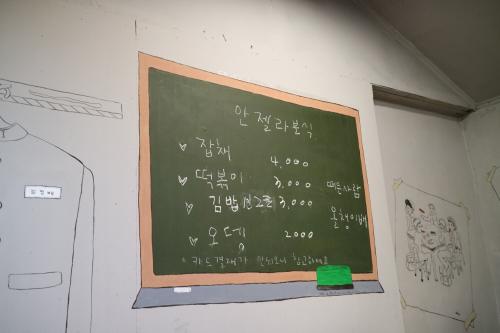 안젤라분식
잡채 4,000
떡볶이 3,000
김밥 3,000
오뎅 2000
떼온사람
올챙이배
* 카드결재가 안되오니 참고하세요